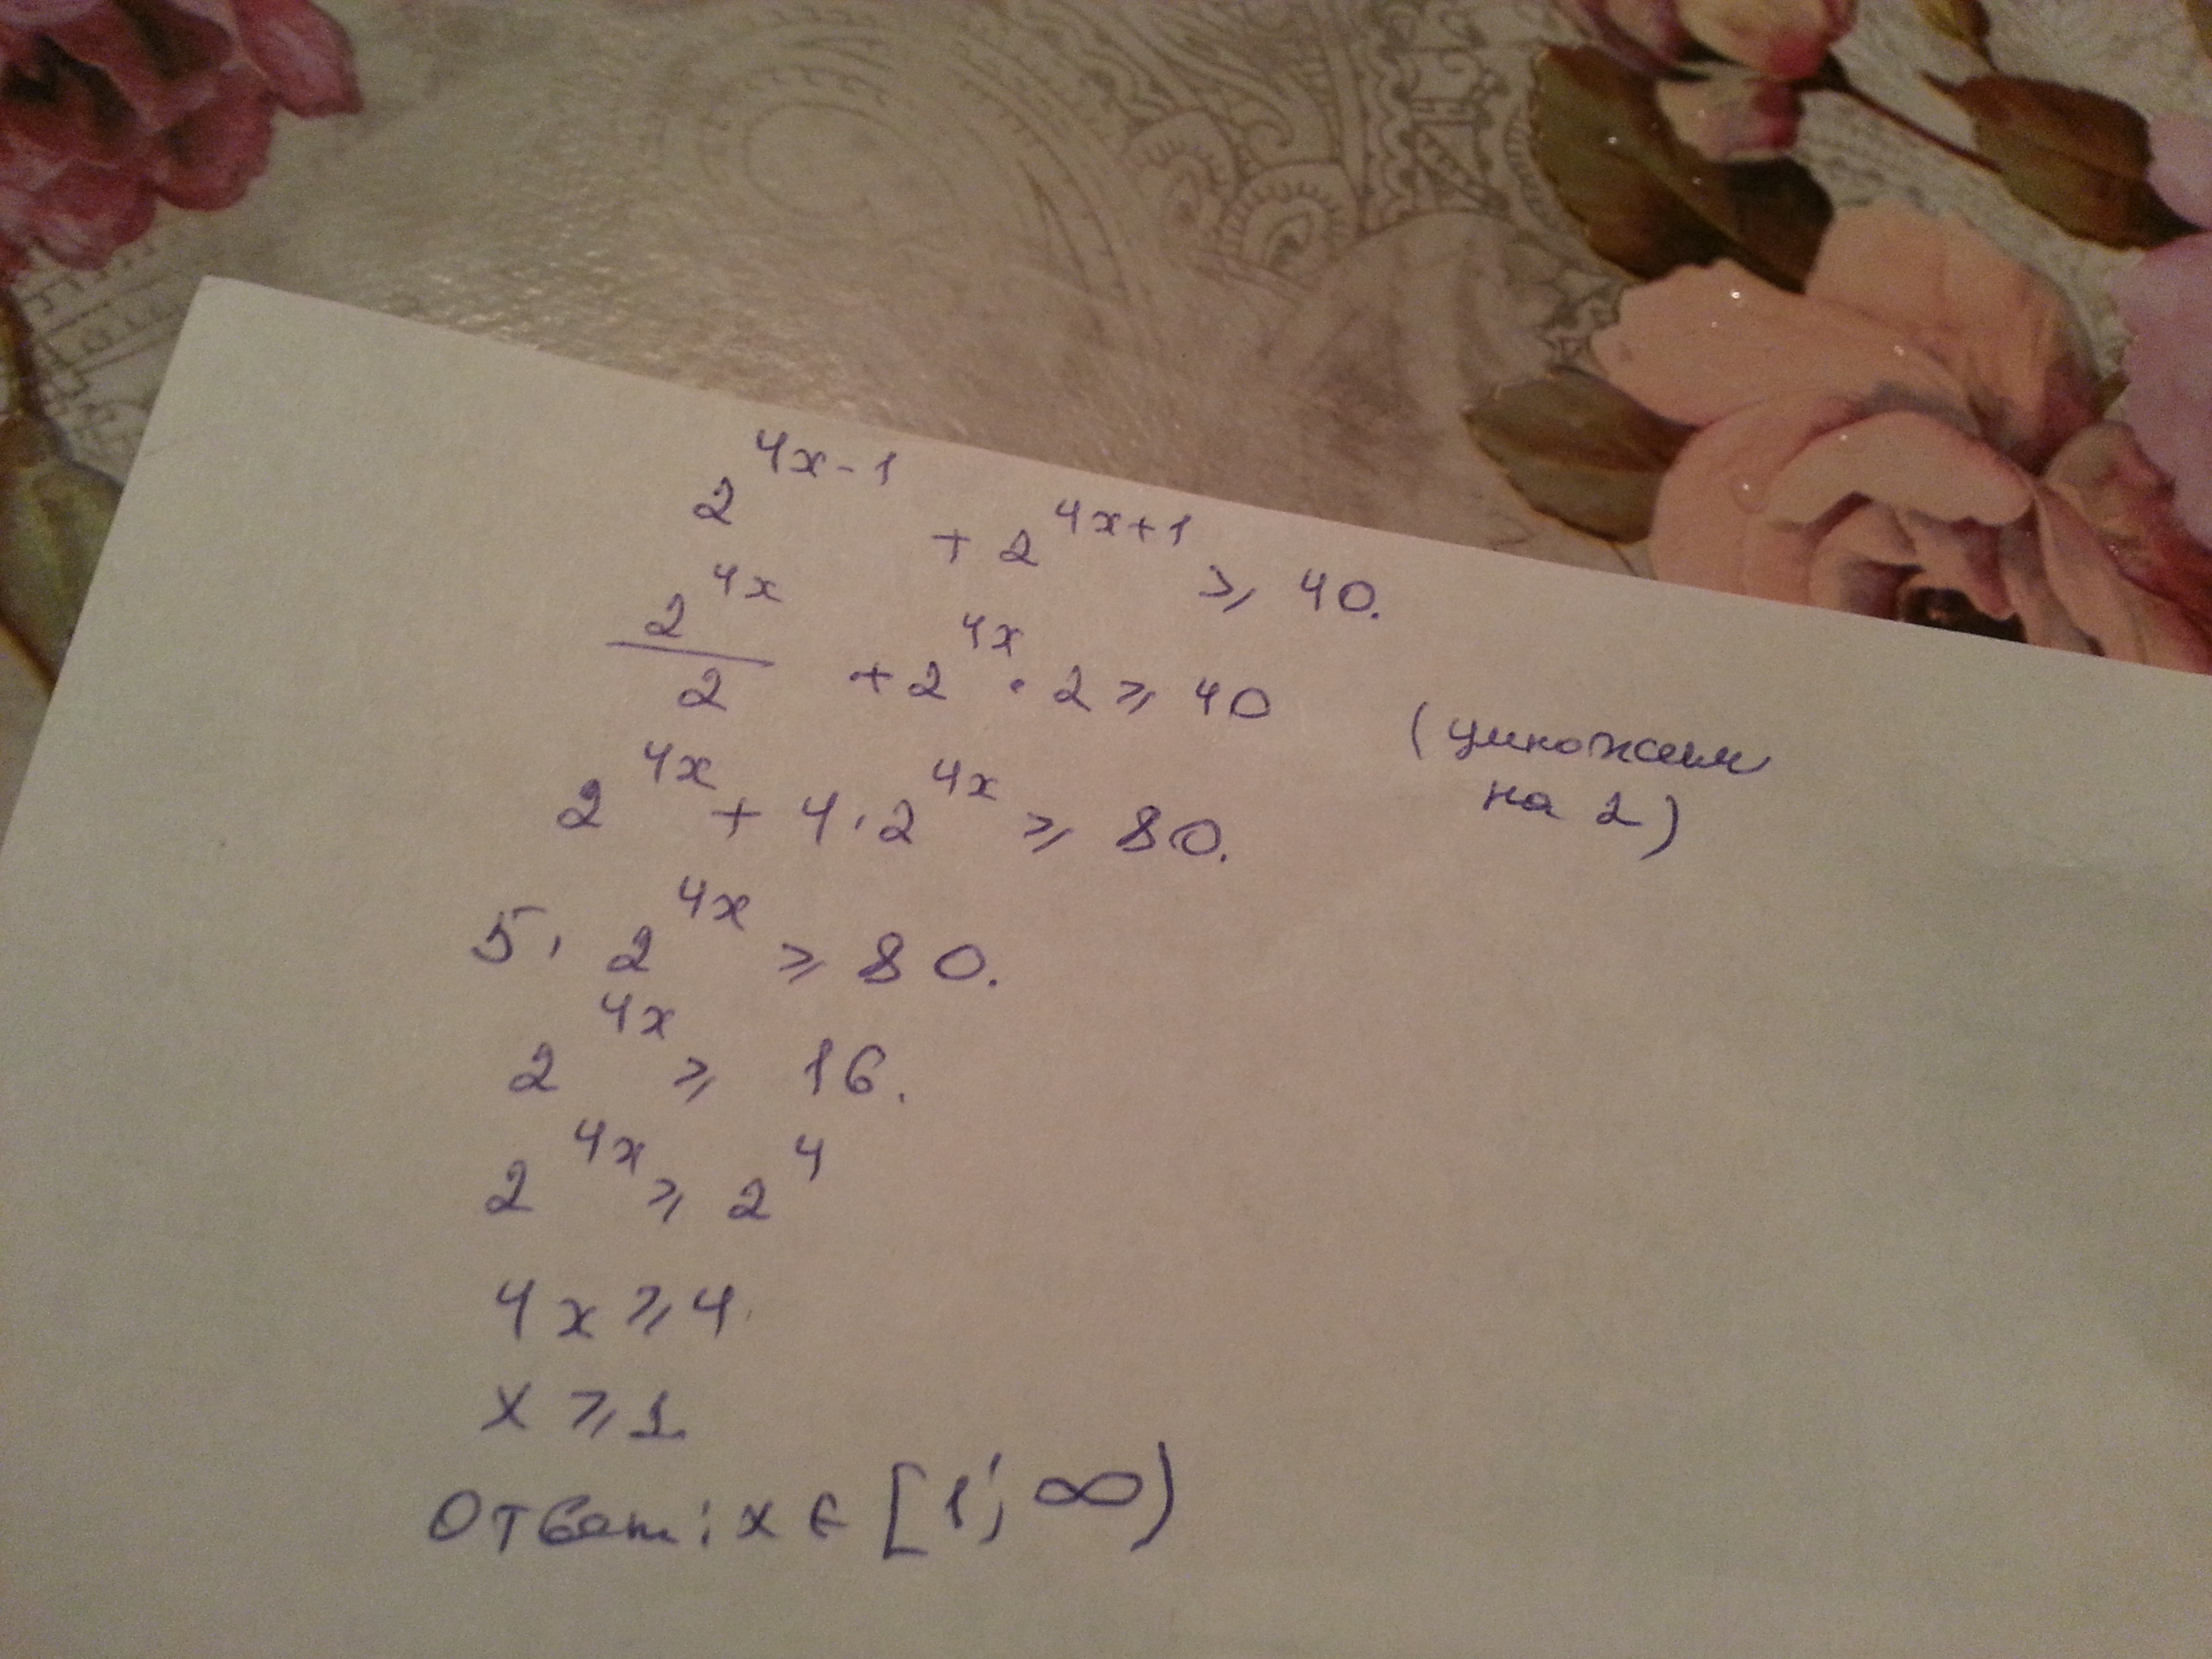 2^(4x-1) + 2^(4x+1) ⩾ 40.
2^(4x)/2 + 2^(4x) · 2 ⩾ 40 (умножаем
на 2)
2^(4x) + 4 · 2^(4x) ⩾ 80.
5 · 2^(4x) ⩾ 80.
2^(4x) ⩾ 16.
2^(4x) ⩾ 2^4
4x ⩾ 4.
x ⩾ 1.
Ответ: x ∈ [1; ∞)